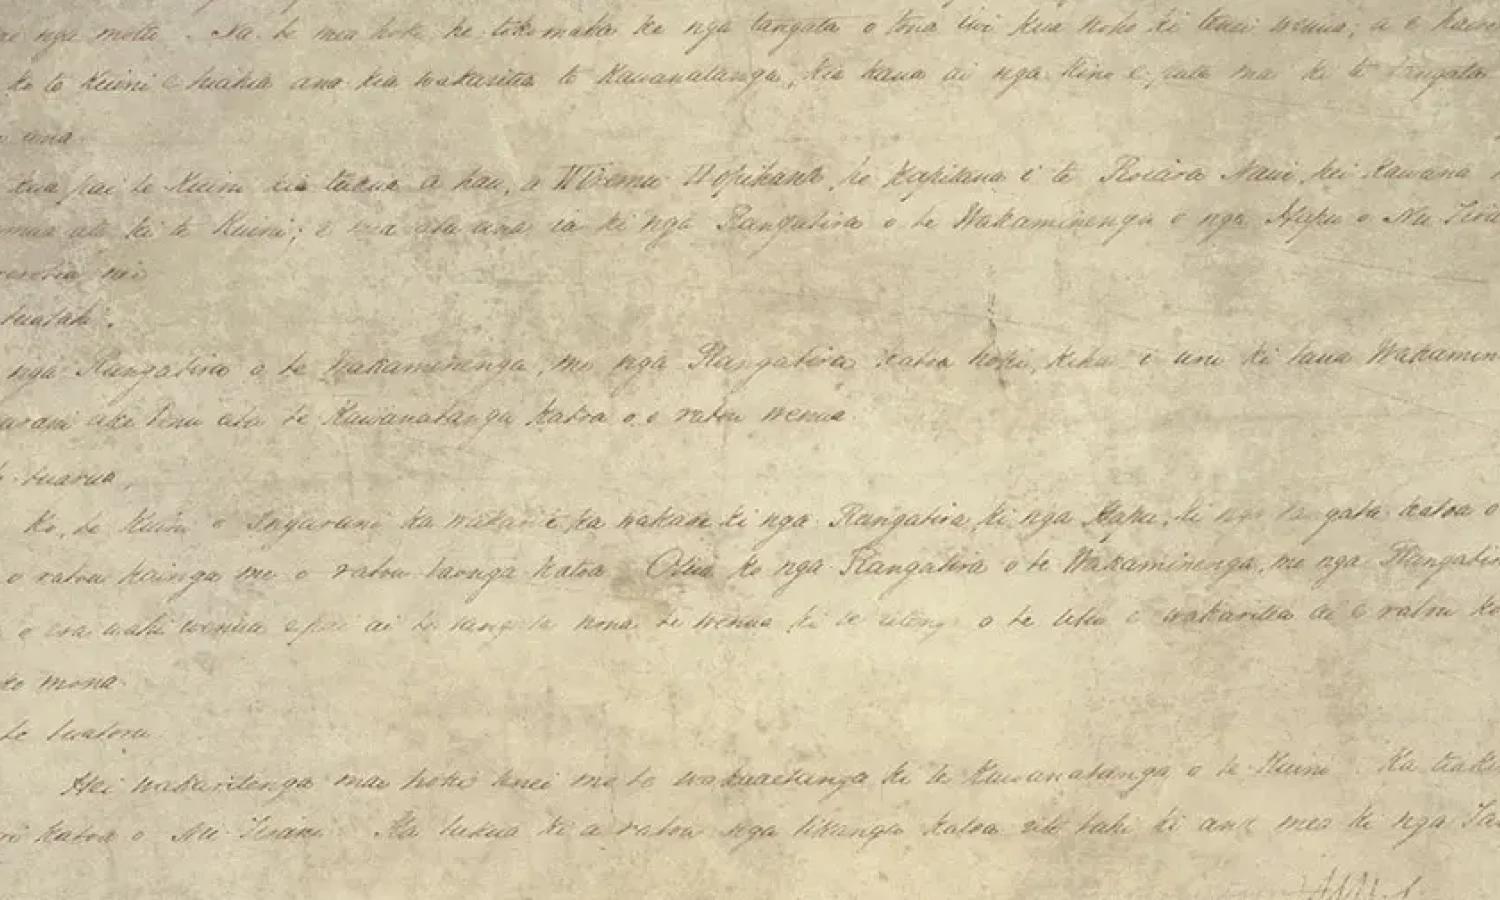 nga motu. Na te mea hoki he tokomaha ke nga tangata o tona Iwi kua noho ki tenei wenua; a e haere
ko te Kuini e hiahia ana kia wakaritea te Kawanatanga, kia kaua ai nga kino e puta mai ki te tangata
ana
kua pai te Kuini kia tukua a hau, a Wiremu Hopihana, he Kapitana i te Roiara Nawi, hei Kawana
mua atu ki te Kuini; e mea atu ana ia ki nga Rangatira o te Wakaminenga o nga Hapu o Nu Tira
nei
tuatahi.
nga Rangatira o te Wakaminenga, me nga Rangatira katoa hoki, kihai i uru ki taua Wakamin
arani ake tonu atu te Kawanatanga katoa o o ratou wenua.
tuarua,
Ko te Kuini o Ingarani ka wakarite ka wakaae ki nga Rangatira, ki nga Hapu, ki nga tangata katoa o
o ratou kainga me o ratou taonga katoa Otiia ko nga Rangatira o te Wakaminenga, me nga Rangatir
o era wahi wenua e pai ai te tangata nona te wenua ki te ritenga o te utu e wakaritea ai e ratou ko
mona.
te tuatoru
Hei wakaritenga mai hoki tenei mo te wakaaetanga ki te Kawanatanga o te Kuini. Ka tiaki
katoa o Nu Tirani. Ka tukua ki a ratou nga tikanga katoa rite tahi ki ana mea ki nga Ta